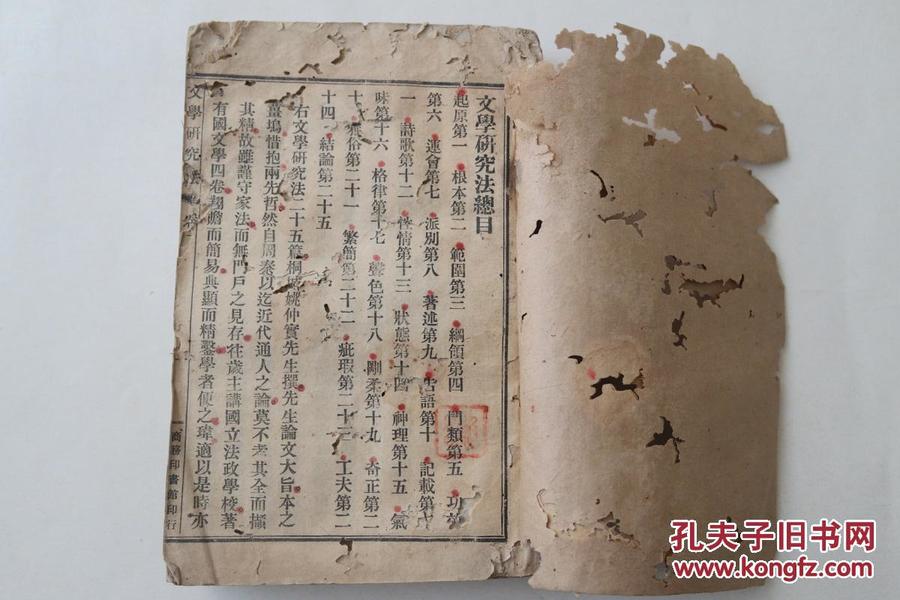 文學研究法總目
起原第一 根本第二 範圍第三 綱領第四 門類第五 功效
第六 運會第七 派別第八 著述第九 告語第十 記載第十
一 詩歌第十二 性情第十三 狀態第十四 神理第十五 氣
味第十六 格律第十七 聲色第十八 剛柔第十九 奇正第二
十 雅俗第二十一 繁簡第二十二 疵瑕第二十三 工夫第二
十四 結論第二十五
右文學研究法二十五篇桐城姚仲實先生撰先生論文大旨本之
薑塢惜抱兩先哲然自周秦以迄近代通人之論莫不考其全而擷
其精故雖謹守家法而無門戶之見存往歲主講國立法政學校著
有國文學四卷翔贍而簡易典顯而精鑿學者便之瑋適以是時亦
文學研究法
商務印書館印行
孔夫子旧书网
www.kongfz.com